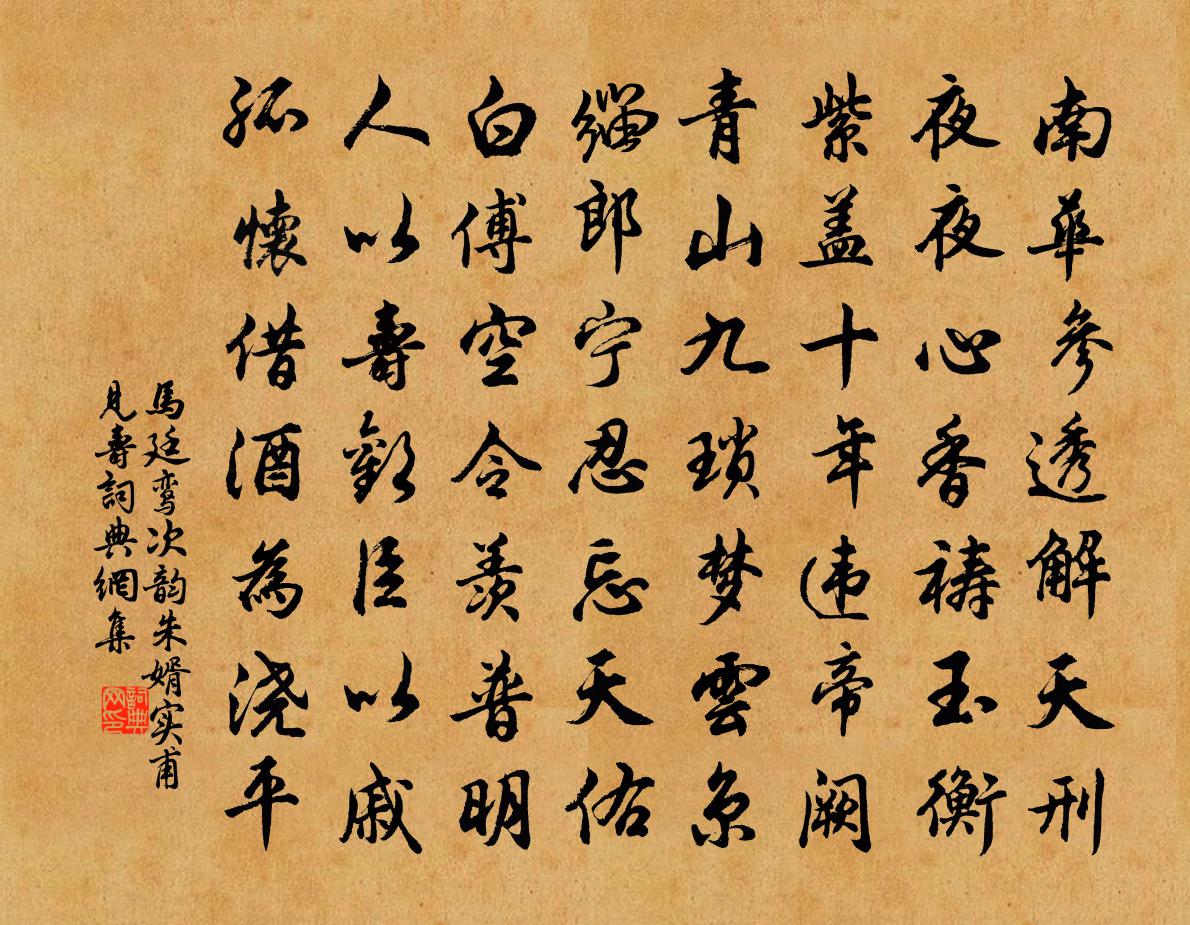 南華參透解天刑
夜夜心香禱玉衡
紫盖十年违帝阙
青山九琐梦雲京
郎宁忍忘天佑
白傅空令羡普明
人以壽歡臣以戚
孤懷借酒為浇平
馬廷鸾次韵朱婿实甫
見壽詞典網集
詞典网印